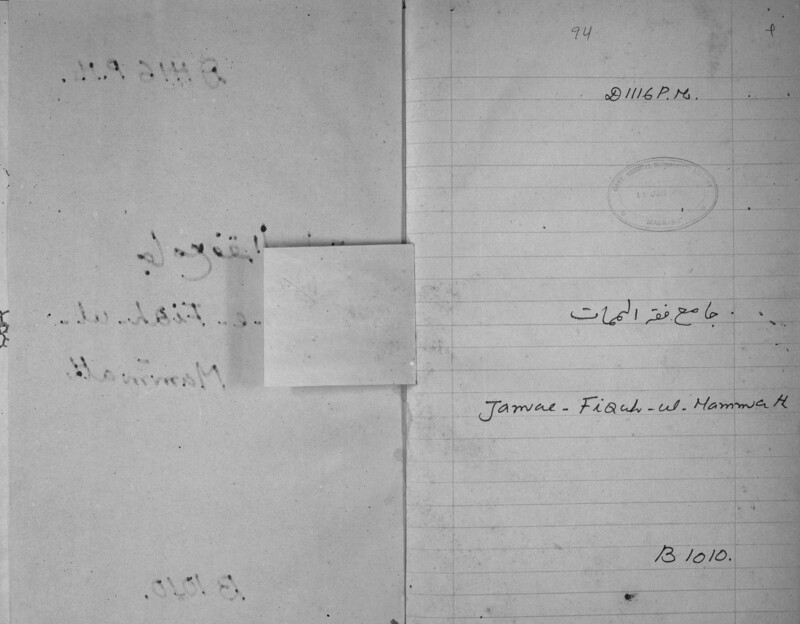 94
D1116 P.M.
جامع فقہ المہمات
Jamae - Fiqah - ul - Mammvatt
B 1010.